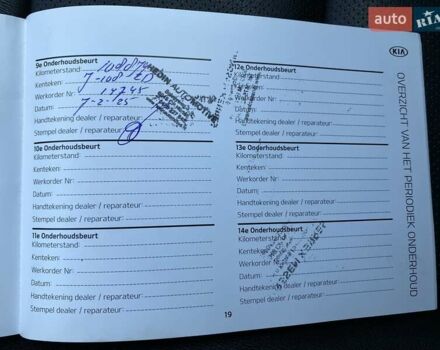 auto RIA
KIA
OVERZICHT VAN HET PERIODIEK ONDERHOUD
9e Onderhoudsbeurt
Kilometerstand:
Kenteken:
Werkorder Nr: 14745
Datum: 7-2-25
Handtekening dealer / reparateur:
Stempel dealer / reparateur:
HEDIN AUTOMOTIVE
10e Onderhoudsbeurt
Kilometerstand:
Kenteken:
Werkorder Nr:
Datum:
Handtekening dealer / reparateur:
Stempel dealer / reparateur:
11e Onderhoudsbeurt
Kilometerstand:
Kenteken:
Werkorder Nr:
Datum:
Handtekening dealer / reparateur:
Stempel dealer / reparateur:
12e Onderhoudsbeurt
Kilometerstand:
Kenteken:
Werkorder Nr:
Datum:
Handtekening dealer / reparateur:
Stempel dealer / reparateur:
13e Onderhoudsbeurt
Kilometerstand:
Kenteken:
Werkorder Nr:
Datum:
Handtekening dealer / reparateur:
Stempel dealer / reparateur:
14e Onderhoudsbeurt
Kilometerstand:
Kenteken:
Werkorder Nr:
Datum:
Handtekening dealer / reparateur:
Stempel dealer / reparateur:
19